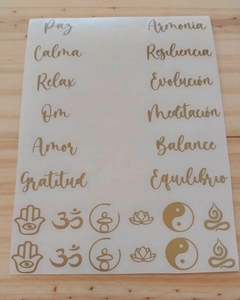 Paz Armonia
Calma Resiliencia
Relax Evolución
Om Meditación
Amor Balance
Gratitud Equilibrio
ॐ
ॐ